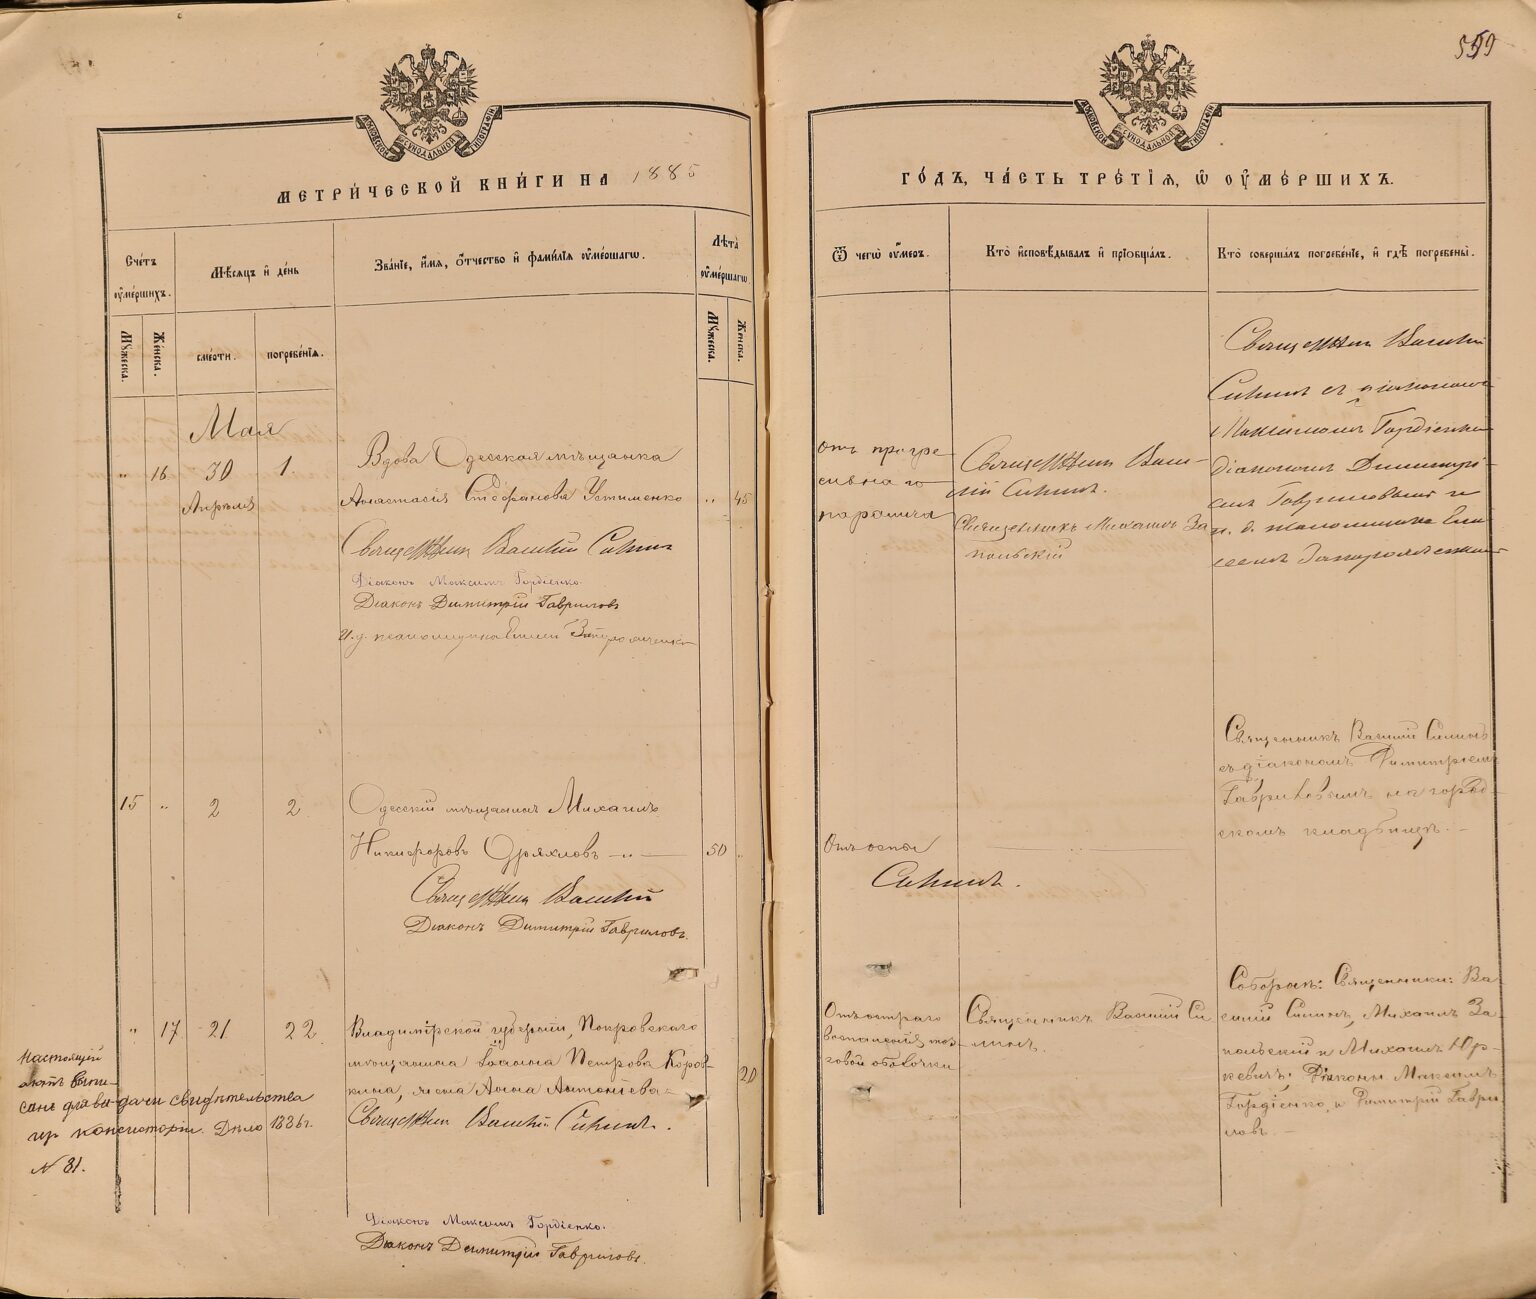 559
МОСКОВСКОЙ СѴНОДАЛЬНОЙ ТИПОГРАФІИ
МОСКОВСКОЙ СѴНОДАЛЬНОЙ ТИПОГРАФІИ
МЕТРИ́ЧЕСКОЙ КНИ́ГИ НА 1885
ГО́ДЪ, ЧА́СТЬ ТРЕ́ТІЯ, Ѡ ОУ҆МЕ́РШИХЪ.
Сче́тъ оу҆ме́ршихъ.
Мꙋжеска.
Же́нска.
Мѣ́сяцъ и҆ де́нь
сме́рти.
погребе́нїя.
Зва́нїе, и҆́мя, ѻ҆́тчество и҆ фами́лїя оу҆ме́ршагѡ.
Лѣ́та оу҆ме́ршагѡ
Мꙋжеска.
Же́нска.
Ѿ чегѡ̀ оу҆́меръ.
Кто̀ и҆сповѣ́дывалъ и҆ прїѡбща́лъ.
Кто̀ соверша́лъ погребе́нїе, и҆ гдѣ̀ погребены̀.
Мая
" 16 30 1.
Апрѣля
Вдова Одесская мѣщанка
Анастасія Стефанова Устименко
" 45
Священник Василий Силин
Діаконъ Максимъ Гордіенко
Діаконъ Димитрій Гавриловъ
И. д. псаломщика
отъ прогре
сивнаго
паралича
Священник Васи-
лій Силинъ.
Священникъ Михаилъ За
польскій
Священник Василий
Силинъ съ діакономъ
Максимомъ Гордіенко
діакономъ Димитрі-
емъ Гавриловымъ и
и. д. псаломщика Ели
сеемъ
15 " 2 2
Одесскій мѣщанинъ Михаилъ
Никифоровъ Дряхловъ
50 "
Священник Василий
Діаконъ Димитрій Гавриловъ.
Отъ оспы
Силинъ.
Священникъ Василій Силинъ
съ діакономъ Димитріемъ
Гавриловымъ на город-
скомъ кладбищѣ. –
" 17 21 22
Владимірской губерніи, Покровскаго
мѣщанина Іоанна Петрова Коров-
кина, жена Анна Антоніева
20
Священник Василий Силинъ.
Діаконъ Максимъ Гордіенко.
Діаконъ Димитрій Гавриловъ.
Отъ остраго
воспаленія моз-
говой оболочки
Священникъ Василій Си
линъ.
Соборнѣ: Священники: Ва-
силій Силинъ, Михаилъ За-
польскій и Михаилъ Юр-
кевичъ; Діаконы Максимъ
Гордіенко, и Димитрій Гаври
ловъ. –
Настоящій
актъ выпи-
санъ для выдачи свидѣтельства
изъ консисторіи. Дѣло 1886 г.
№ 81.